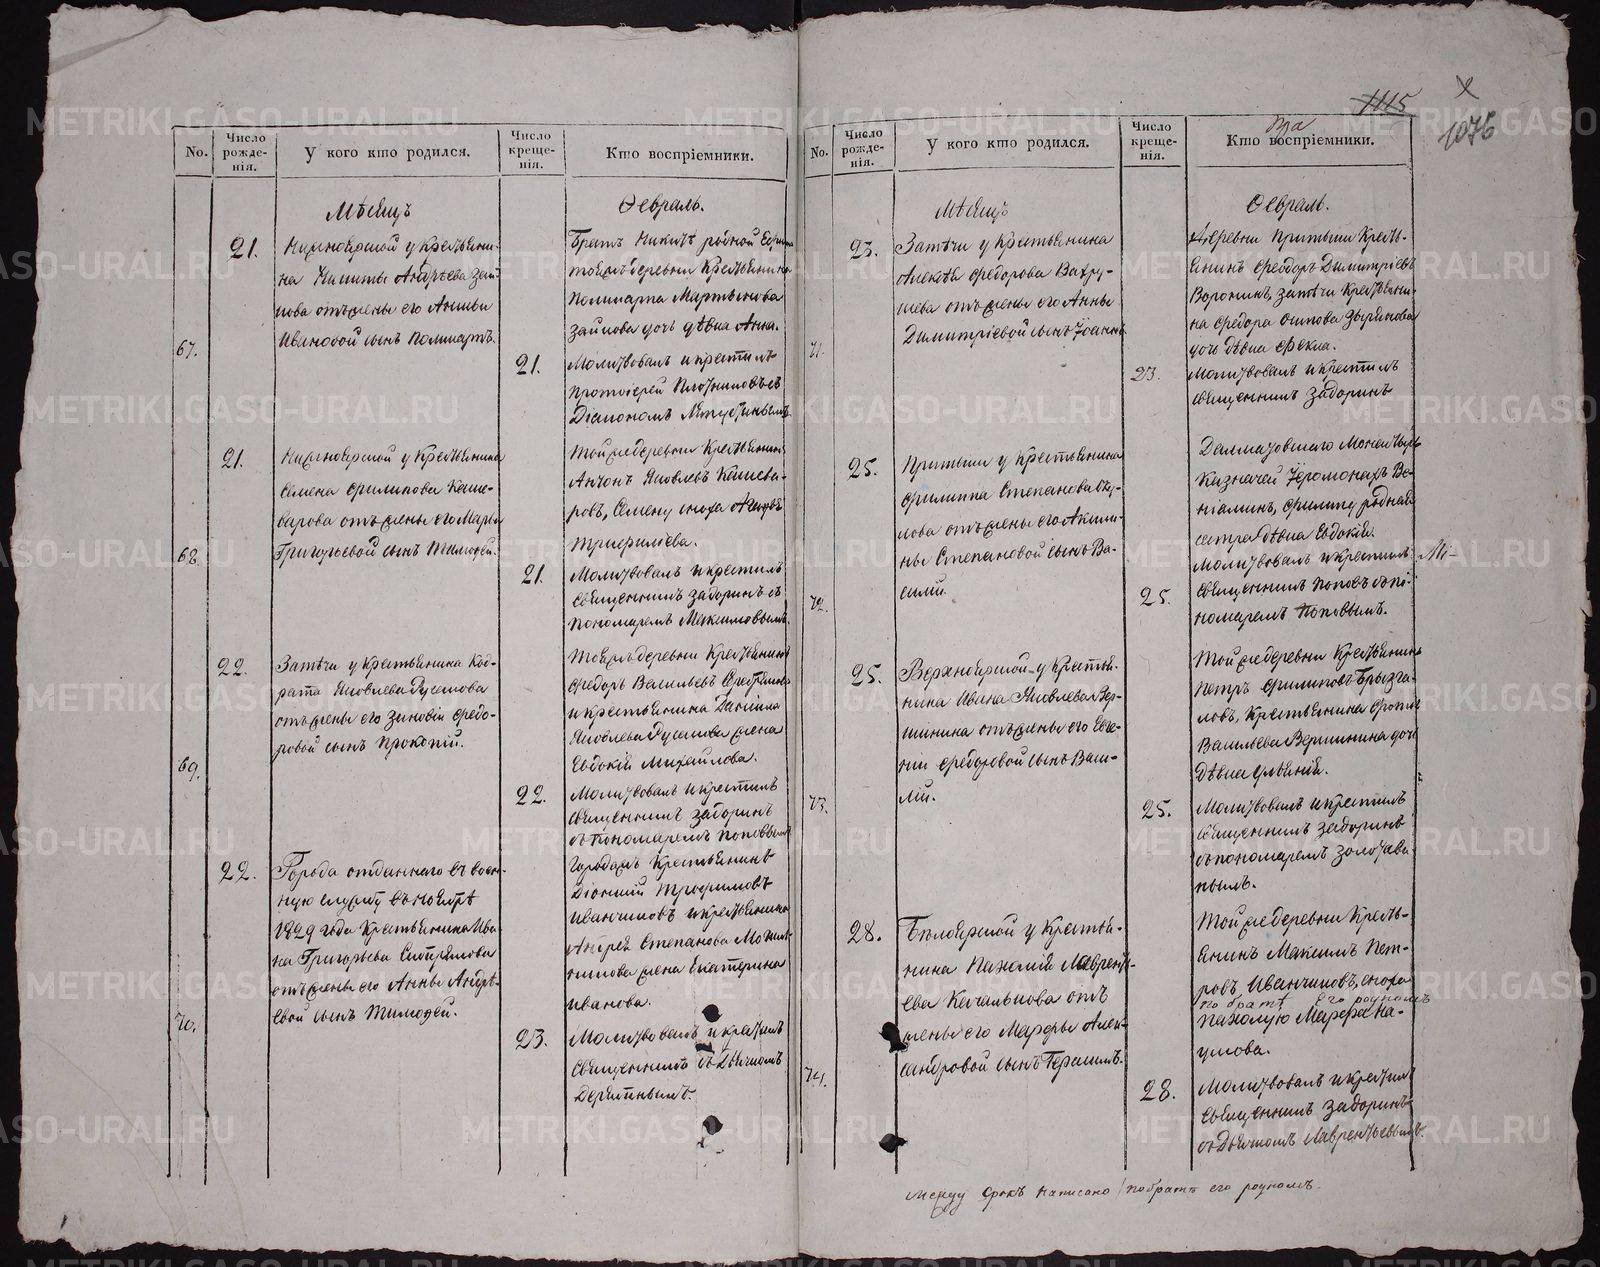 1115
1076
No.
Число рожде-нія.
У кого кто родился.
Число креще-нія.
Кто воспріемники.
Мѣсяцъ
Февраль.
67.
21.
Нижноярской у крестьяни-
на Никиты Андрѣева Заи-
кова отъ жены его
Ивановой сынъ Поликарпъ.
Братъ Никитѣ родной
тояжъ деревни крестьянина
Поликарпа Мартынова
Заикова дочь дѣвка Анна.
21.
Молитвовалъ и крестилъ
протоіерей Плотниковъ съ
Діакономъ
68.
21.
Нижноярской у крестьянина
Семена Филипова Кеше-
варова отъ жены его Марьи
Григорьевой сынъ Тимофей.
Той же деревни крестьянинъ
Антонъ Яковлевъ Кашева-
ровъ, Семену сноха
Трифилiева.
21.
Молитвовалъ и крестилъ
священникъ Задоринъ съ
пономаремъ Максимовымъ.
69.
22.
Затѣчи у крестьянина Код-
рата Яковлева Русакова
отъ жены его Зиновіи Федо-
ровой сынъ Прокопій.
Тояжъ деревни крестьянинъ
Федоръ Васильевъ
и крестьянина Даніила
Яковлева Русакова жена
Евдокія Михайлова.
22.
Молитвовалъ и крестилъ
священникъ Задоринъ
съ пономаремъ Поповымъ
70.
22.
Города отданнаго въ воен-
ную службу въ ноябрѣ
1829 года крестьянина Ива-
на Григорьева
отъ жены его Анны Андрѣ-
евой сынъ Тимофей.
крестьянинъ
Діонисій Трофимовъ
Иванчиковъ и крестьянина
Андрея Степанова
жена Екатерина
Иванова.
23.
Молитвовалъ и крестилъ
священникъ съ Дьячкомъ
No.
Число рожде-нія.
У кого кто родился.
Число креще-нія.
Кто воспріемники.
Мѣсяцъ
Февраль.
71.
23.
Затѣчи у крестьянина
Алексѣя Федорова Вахру-
шева отъ жены его Анны
Димитріевой сынъ Іоаннъ
Деревни Притыки кресть-
янинъ Феодоръ Димитріевъ
Воронинъ, Затѣчи крестьяни-
на Федора Осипова Зырянова
дочь дѣвка Фекла.
23.
Молитвовалъ и крестилъ
священникъ Задоринъ
72.
25.
Притыки у крестьянина
Филиппа Степанова
отъ жены его Акили-
ны Степановой сынъ Ва-
силій.
Далматовскаго Монастыря
Казначей Іеромонахъ Ве-
ніаминъ, Филипу родная
сестра дѣвка Евдокія.
25.
Молитвовалъ и крестилъ
священникъ Поповъ съ по-
номаремъ Поповымъ.
73.
25.
Верхноярской у крестья-
нина Ивана Яковлева Вер-
шинина отъ жены его Евге-
ніи Федоровой сынъ Васи-
лій.
Той же деревни крестьянинъ
Петръ Филиповъ Брызга-
ловъ, крестьянина
Васильева Вершинина дочь
дѣвка
25.
Молитвовалъ и крестилъ
священникъ Задоринъ
съ пономаремъ Золотави-
нымъ.
74.
28.
Бѣлоярской у крестья-
нина Пахомія Лаврентъ-
ева Качалкова отъ
жены его Марфы Алек-
сандровой сынъ Герасимъ.
Той же деревни кресть-
янинъ Максимъ Пет-
ровъ Иванчиковъ, сноха
по братѣ его родномъ
Пахомію Марфа На-
умова.
28.
Молитвовалъ и крестилъ
священникъ Задоринъ
съ Дьячкомъ Лаврентьевымъ.
Между строкъ написано / по братѣ его родномъ.
METRIKI.GASO-URAL.RU